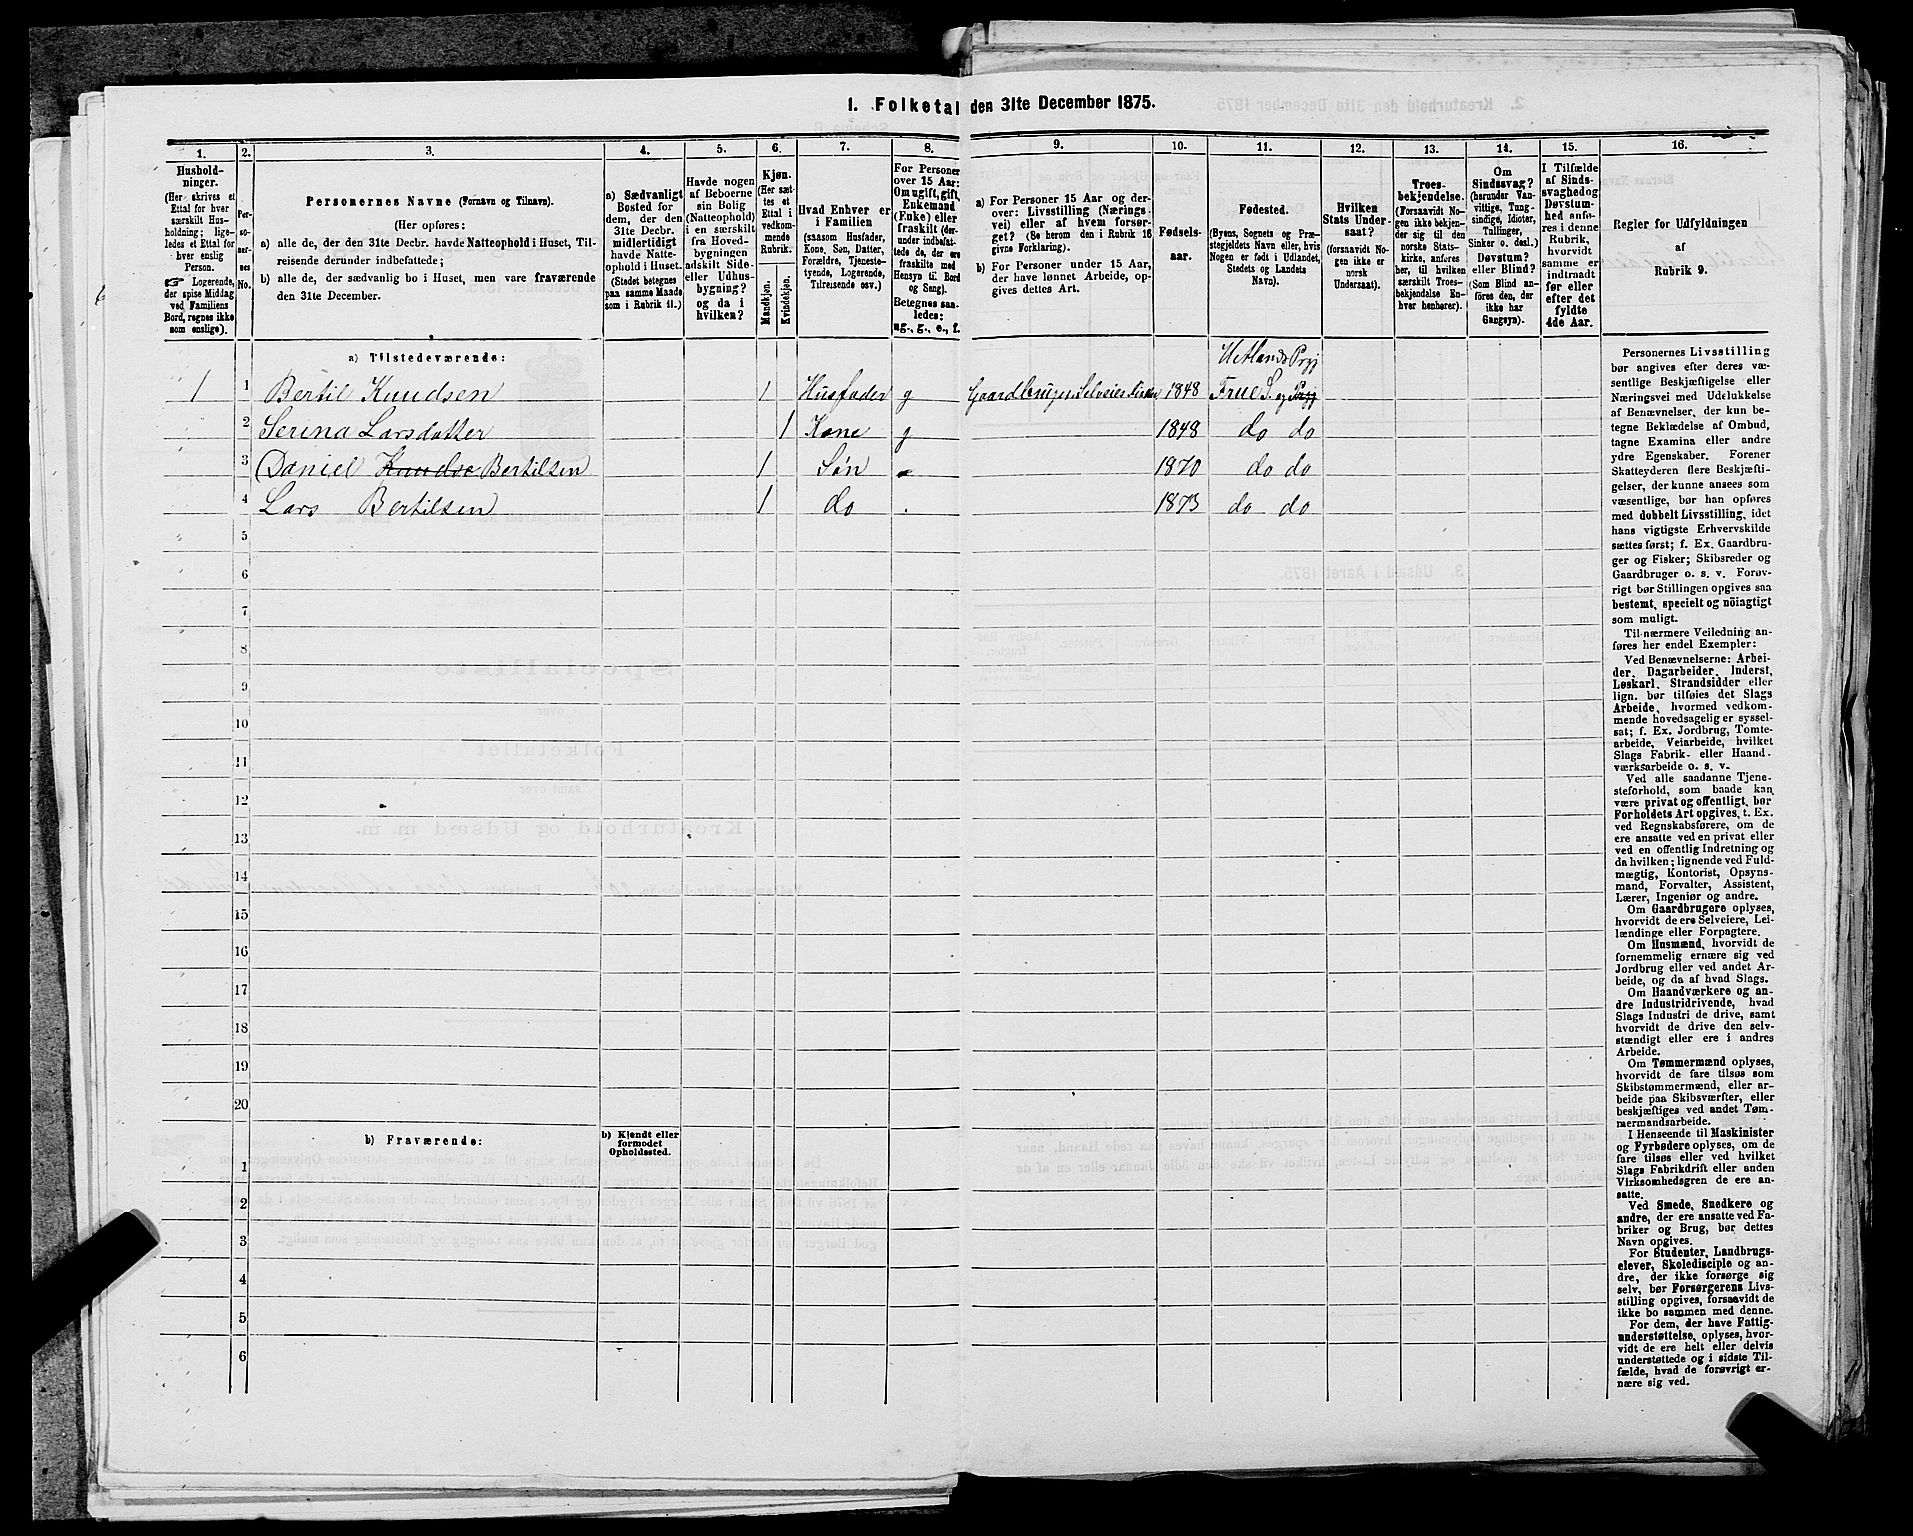 1. Folketal den 31te December 1875.
1.
2.
3.
4.
5.
6.
7.
8.
9.
10.
11.
12.
13.
14.
15.
16.
Hushold-
ninger.
(Her skrives et
Ettal for hver
særskilt Hus-
holdning; lige-
ledes et Ettal for
hver enslig
Person.
☞ Logerende,
der spise Middag
ved Familiens
Bord, regnes ikke
som enslige).
Per-
so-
ner-
nes
No.
Personernes Navne (Fornavn og Tilnavn).
(Her opføres:
a) alle de, der den 31te Decbr. havde Natteophold i Huset, Til-
reisende derunder indbefattede;
b) alle de, der sædvanlig bo i Huset, men vare fraværende
den 31te December.
a) Sædvanligt
Bosted for
dem, der den
31te Decbr.
midlertidigt
havde Natte-
ophold i Huset.
(Stedet betegnes
paa samme Maade
som i Rubrik 11.)
Havde nogen
af Beboerne
sin Bolig
(Natteophold)
i en særskilt
fra Hoved-
bygningen
adskilt Side-
eller Udhus-
bygning?
og da i
hvilken?
Kjøn.
(Her sæt-
tes et
Ettal i
vedkom-
mende
Rubrik.)
Mandkjøn.
Kvindekjøn.
Hvad Enhver er
i Familien
(saasom Husfader,
Kone, Søn, Datter,
Forældre, Tjeneste-
tyende, Logerende,
Tilreisende osv.)
For Personer
over 15 Aar:
Om ugift, gift,
Enkemand
(Enke) eller
fraskilt (der-
under indbefat-
tede de, der ere
fraskilte med
Hensyn til Bord
og Seng).
Betegnes saa-
ledes:
ug., g., e., f.
a) For Personer 15 Aar og der-
over: Livsstilling (Nærings-
vei) eller af hvem forsør-
get? (Se herom den i Rubrik 16
givne Forklaring).
b) For Personer under 15 Aar,
der have lønnet Arbeide, op-
gives dettes Art.
Fødsels-
aar.
Fødested.
(Byens, Sognets og Præ-
stegjeldets Navn eller, hvis
Nogen er født i Udlandet,
Stedets og Landets
Navn).
Hvilken
Stats Under-
saat?
(forsaavidt No-
gen ikke er
norsk
Undersaat).
Troes-
bekjendelse.
(Forsaavidt No-
gen ikke bekjen-
der sig til den
norske Stats-
kirke, anføres
her, til hvilken
særskilt Troes-
bekjendelse En-
hver henhører).
Om
Sindssvag?
(herunder Van-
vittige, Tung-
sindige, Idioter,
Tullinger,
Sinker o. desl.).
Døvstum?
eller Blind?
(Som Blind an-
føres den, der
ikke har
Gangsyn).
I Tilfælde
af Sinds-
svaghed og
Døvstum-
hed anfø-
res i denne
Rubrik,
hvorvidt
samme er
indtraadt
før eller
efter det
fyldte
4de Aar.
Regler for Udfyldningen
af
Rubrik 9.
a) Tilstedeværende:
Hetlands Prgj
1 1 Bertil Knudsen 1 Husfader g Gaardbruger Selveier 1848 True S. og Prgj
2 Serina Larsdatter 1 Kone g 1848 do do
3 Daniel Knudse Bertilsen 1 Søn 1870 do do
4 Lars Bertilsen 1 do 1873 do do
5
6
7
8
9
10
11
12
13
14
15
16
17
18
19
20
b) Fraværende:
b) Kjendt eller
formodet
Opholdssted.
1
2
3
4
5
6
Personernes Livsstilling
bør angives efter deres væ-
sentlige Beskjæftigelse eller
Næringsvei med Udelukkelse
af Benævnelser, der kun be-
tegne Beklædelse af Ombud,
tagne Examina eller andre
ydre Egenskaber. Forener
Skatteyderen flere Beskjæfti-
gelser, der kunne ansees som
væsentlige, bør han opføres
med dobbelt Livsstilling, idet
hans vigtigste Erhvervskilde
sættes først; f. Ex. Gaardbru-
ger og Fisker; Skibsreder og
Gaardbruger o. s. v. Forøv-
rigt bør Stillingen opgives saa
bestemt, specielt og nöiagtigt
som muligt.
Til nærmere Veiledning an-
føres her endel Exempler:
Ved Benævnelserne: Arbei-
der, Dagarbeider, Inderst,
Løskarl, Strandsidder eller
lign. bør tilføies det Slags
Arbeide, hvormed vedkom-
mende hovedsagelig er syssel-
sat; f. Ex. Jordbrug, Tomte-
arbeide, Veiarbeide, hvilket
Slags Fabrik- eller Haand-
værksarbeide o. s. v.
Ved alle saadanne Tjene-
steforhold, som baade kan
være privat og offentligt, bør
Forholdets Art opgives, t. Ex.
ved Regnskabsførere, om de
ere ansatte ved en privat eller
ved en offentlig Indretning og
da hvilken; lignende ved Fuld-
mægtig, Kontorist, Opsyns-
mand, Forvalter, Assistent,
Lærer, Ingeniør og andre.
Om Gaardbrugere oplyses,
hvorvidt de ere Selveiere, Lei-
lændinge eller Forpagtere.
Om Husmænd, hvorvidt de
fornemmelig ernære sig ved
Jordbrug eller ved andet Ar-
beide, og da af hvad Slags.
Om Haandværkere og an-
dre Industridrivende, hvad
Slags Industri de drive, samt
hvorvidt de drive den selv-
stændigt eller ere i andres
Arbeide.
Om Tømmermænd oplyses,
hvorvidt de fare tilsøs som
Skibstømmermænd, eller ar-
beide paa Skibsværfter, eller
beskjæftiges ved andet Tøm-
mermandsarbeide.
I Henseende til Maskinister
og Fyrbødere oplyses, om de
fare tilsøs eller ved hvilket
Slags Fabrikdrift eller anden
Virksomhedsgren de ere an-
satte.
Ved Smede, Snedkere og
andre, der ere ansatte ved Fa-
briker og Brug, bør dettes
Navn opgives.
For Studenter, Landbrugs-
elever, Skoledisciple og an-
dre, der ikke forsørge sig
selv, bør Forsørgerens Livs-
stilling opgives, forsaavidt de
ikke bo sammen med denne.
For dem, der have Fattig-
understøttelse, oplyses, hvor-
vidt de ere helt eller delvis
understøttede og i sidste Til-
fælde, hvad de forøvrigt er-
nære sig ved.